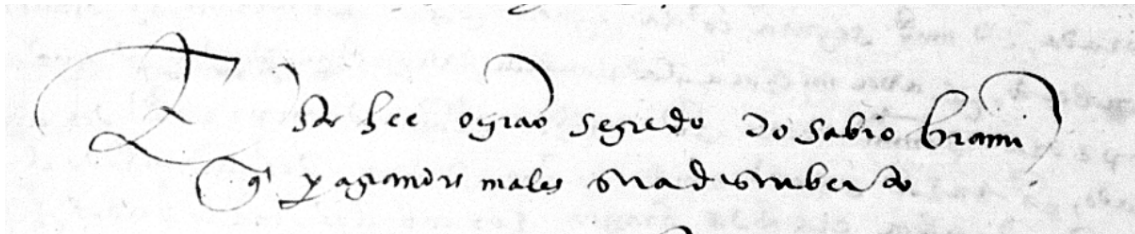 Este hee o grão segredo do sabio brami
q̃ p agrandes males